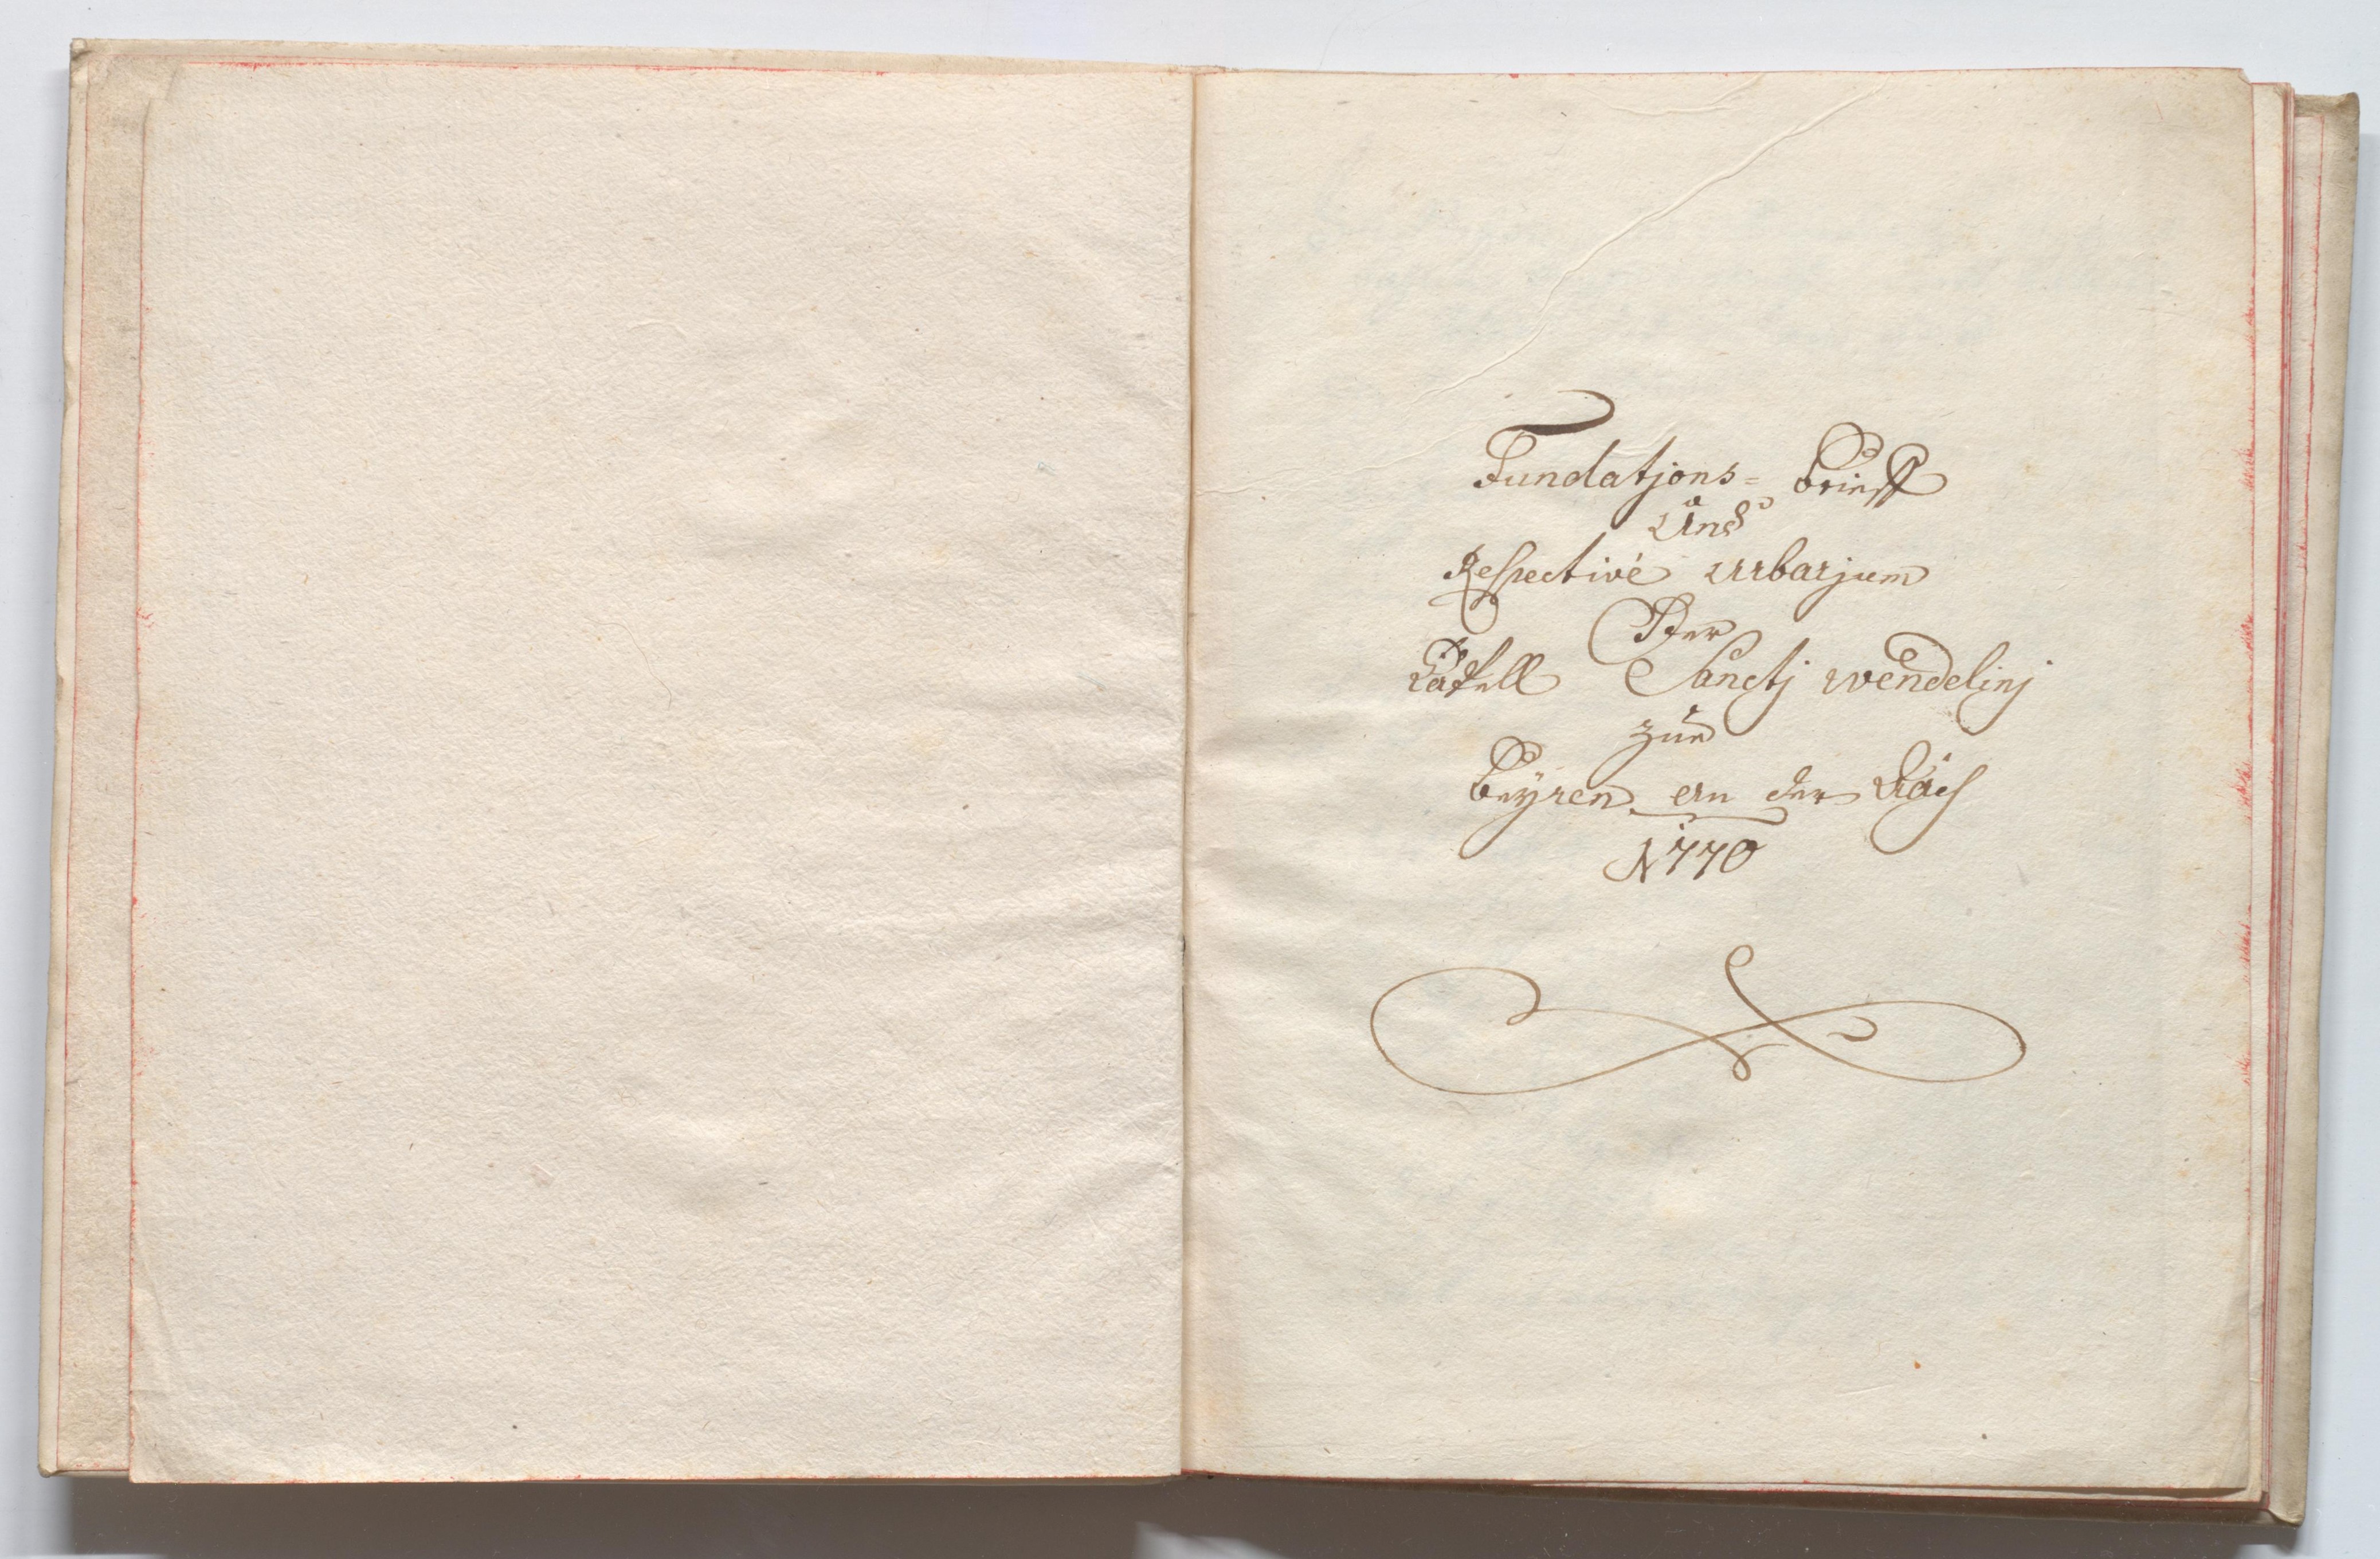 Fundatjons= Brieff
Und
Respectivè Urbarjum
Der
Capell Sanctj Wendelinj
zue
Beyren an der Aach
1770